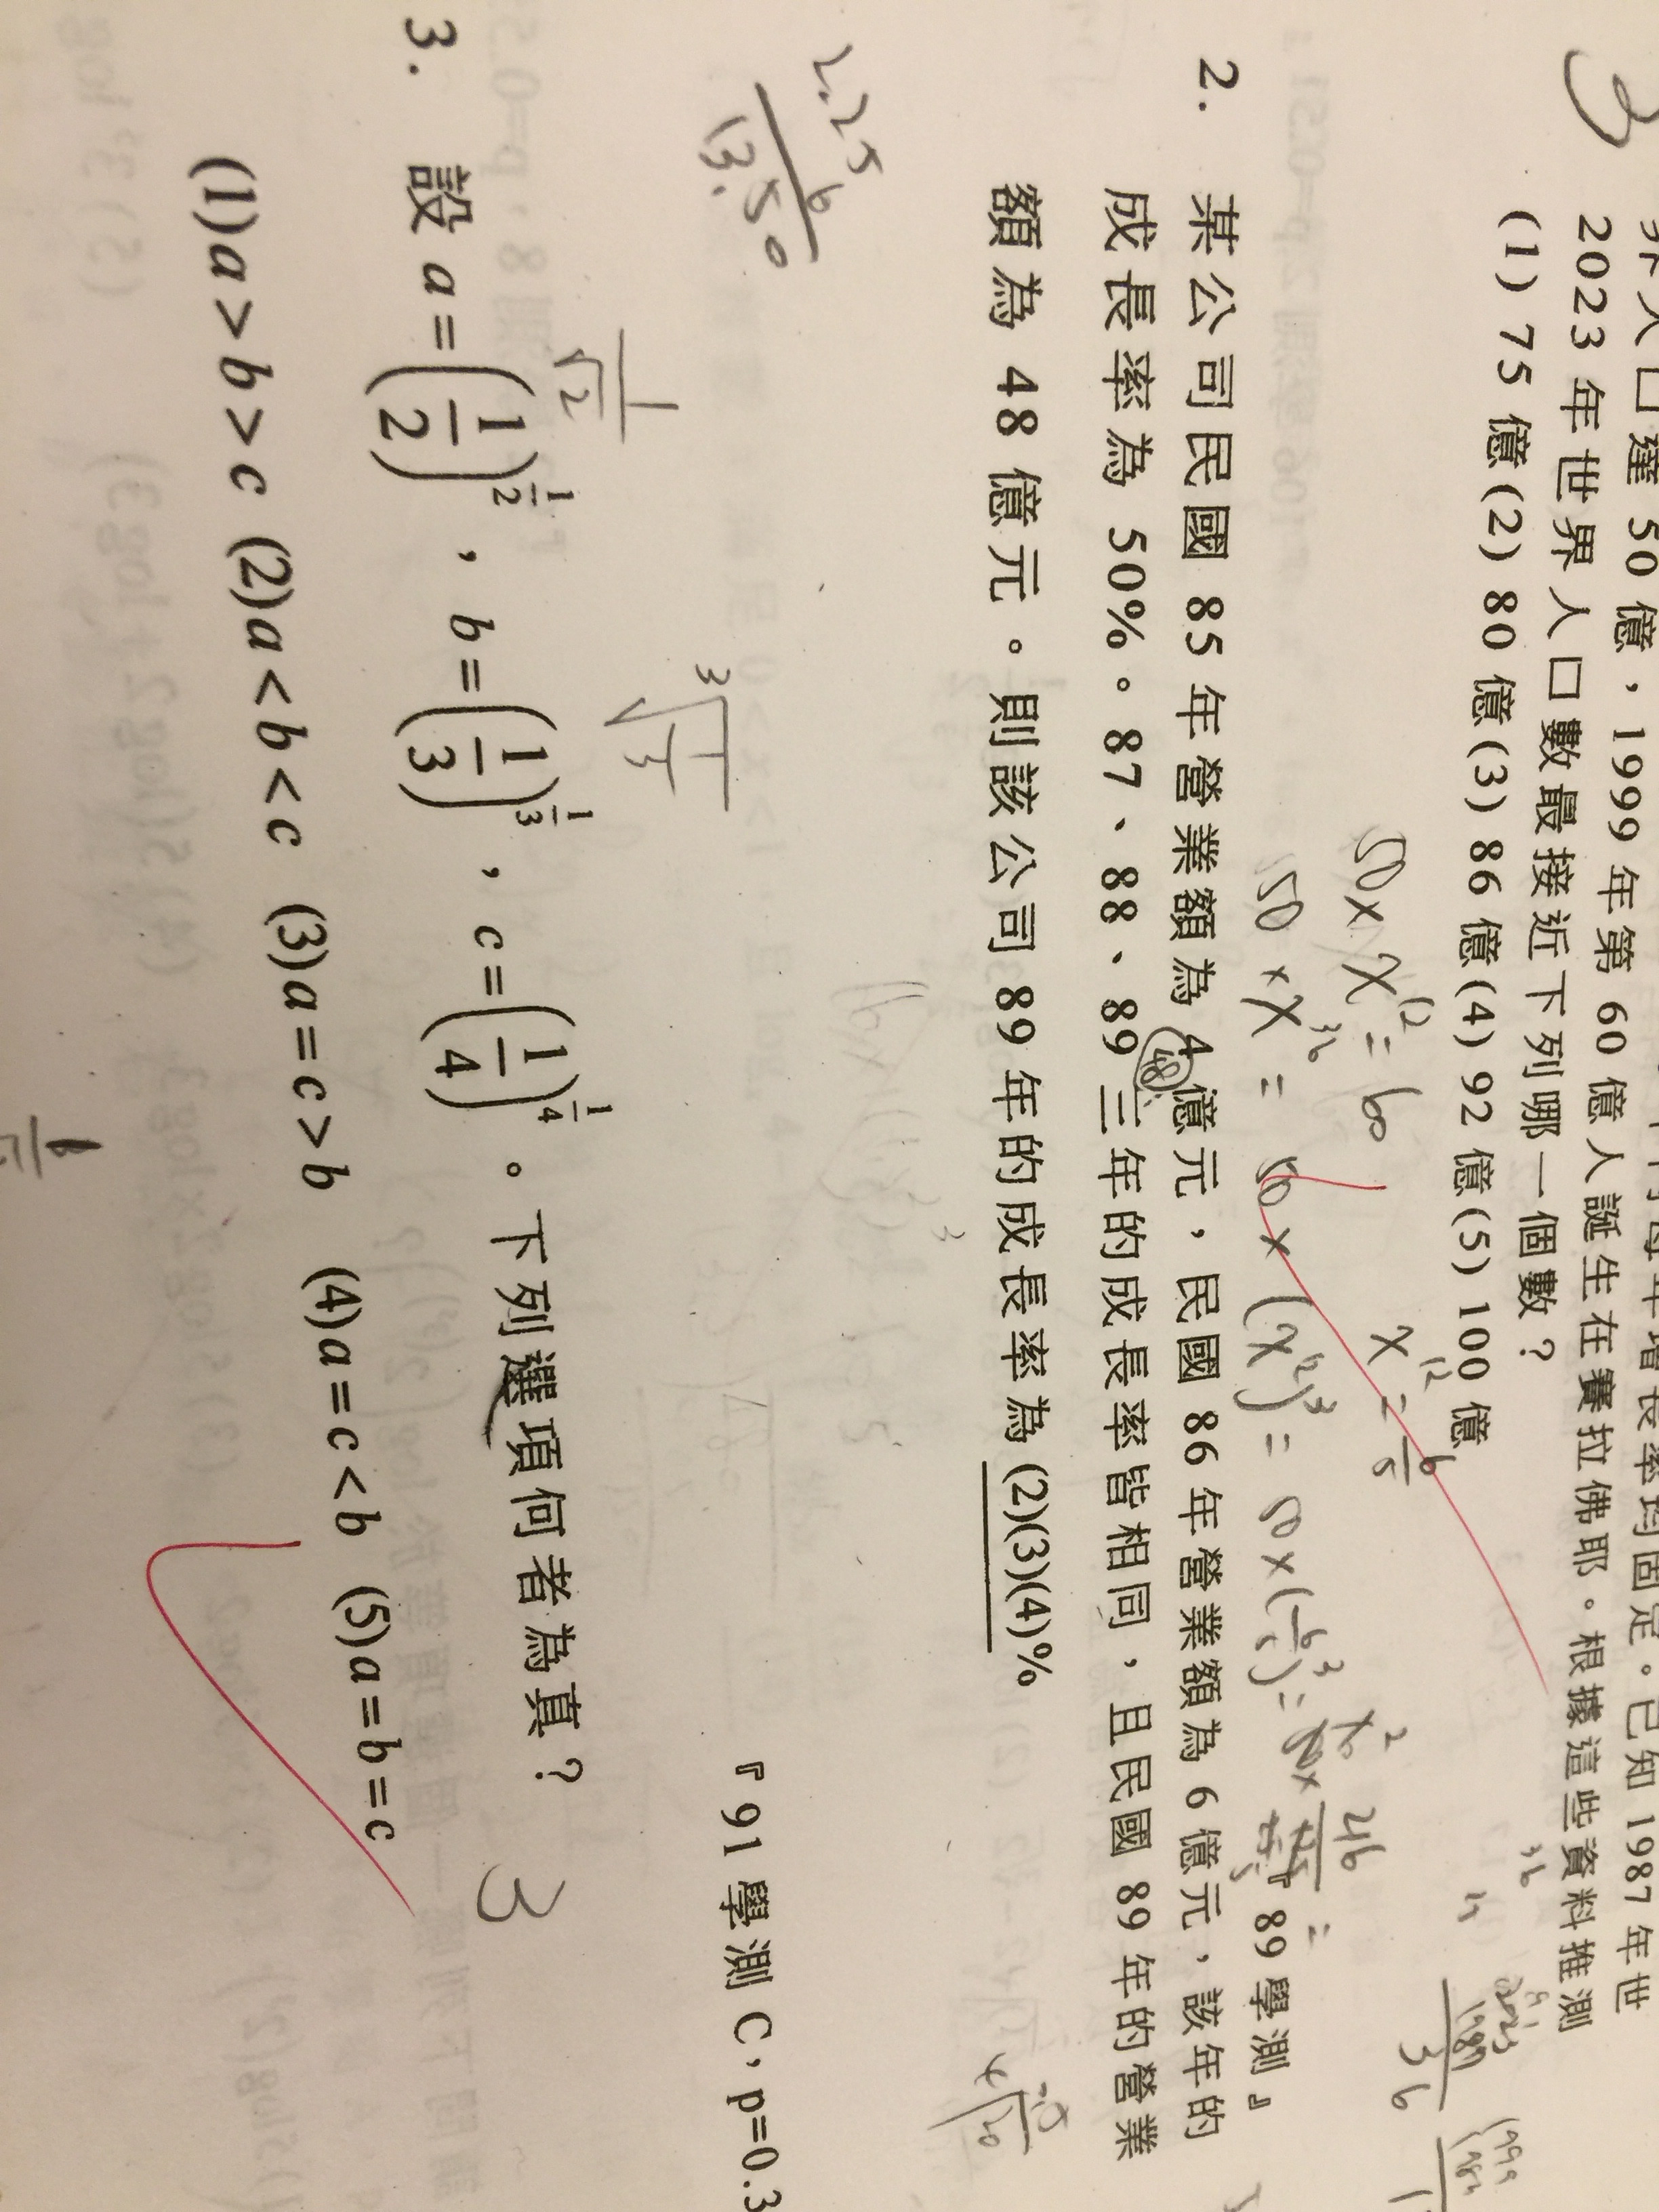 界人口達 50 億，1999 年第 60 億人誕生在賽拉佛耶。根據這些資料推測
2023 年世界人口數最接近下列哪一個數？
(1) 75 億 (2) 80 億 (3) 86 億 (4) 92 億 (5) 100 億
3
50 × x^12 = 60
x^12 = 6/5
50 × x^36 = 50 × (x^12)^3 = 50 × (6/5)^3 =
216
2023
1987
36
『 89 學測 』
2. 某公司民國 85 年營業額為 4 億元，民國 86 年營業額為 6 億元，該年的
成長率為 50%。87、88、89 三年的成長率皆相同，且民國 89 年的營業
額為 48 億元。則該公司 89 年的成長率為 (2)(3)(4)%
48
2.25
6
13.50
『 91 學測 C，p=0.3
1/√2
∛(1/3)
3. 設 a=(1/2)^(1/2)，b=(1/3)^(1/3)，c=(1/4)^(1/4)。下列選項何者為真？
3
(1)a>b>c (2)a<b<c (3)a=c>b (4)a=c<b (5)a=b=c